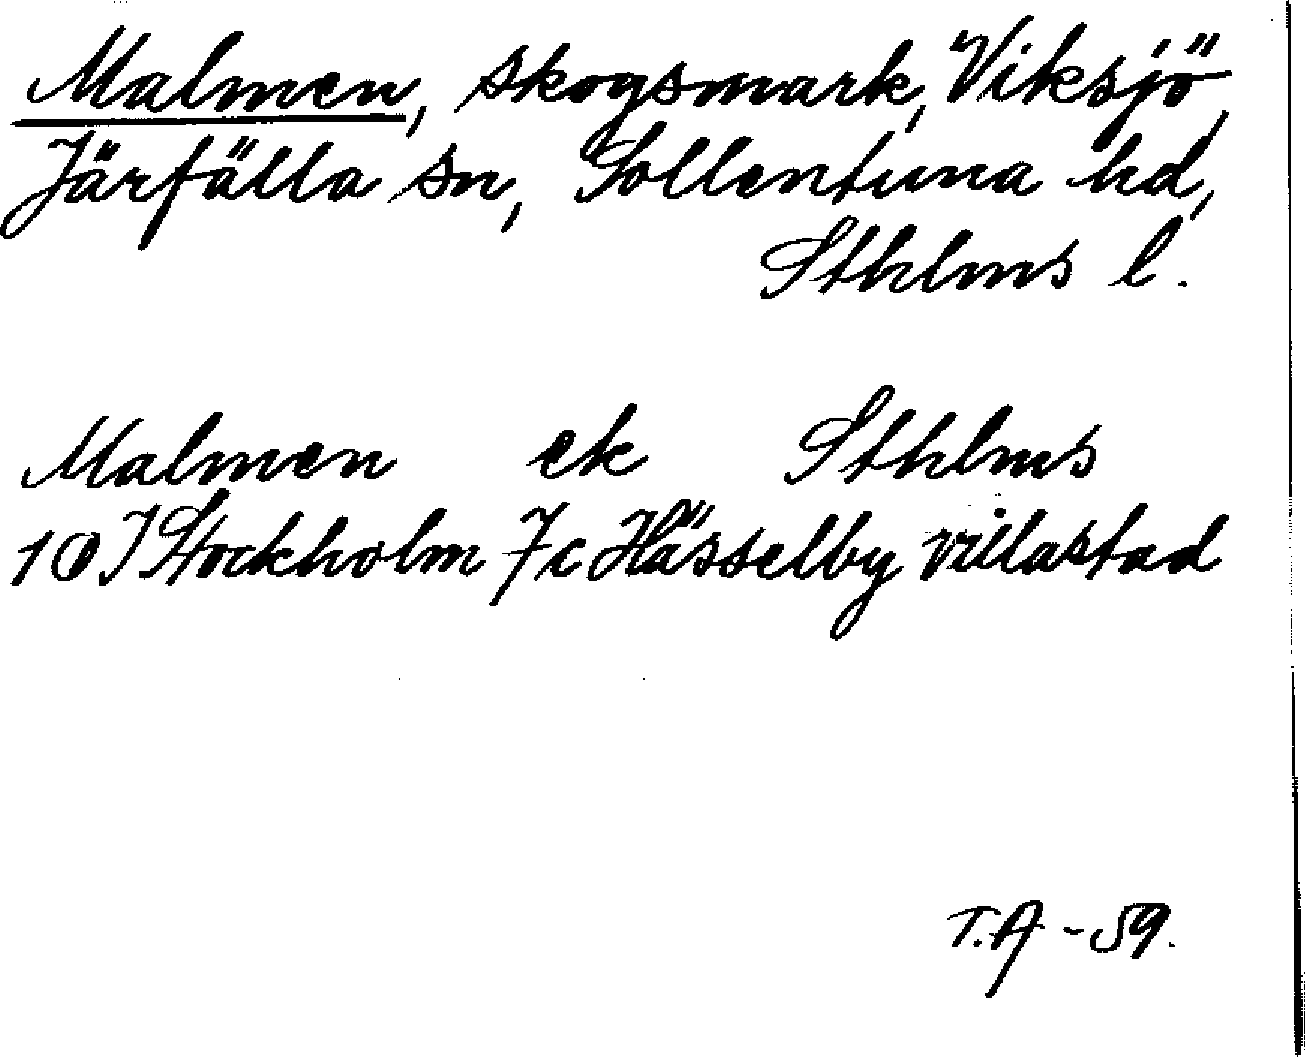 Malmen, skogsmark, Viksjö,
Järfälla sn, Sollentuna hd,
Sthlms l.
Malmen ek Sthlms
10I Stockholm 7c Hässelby villastad
T.A -59.